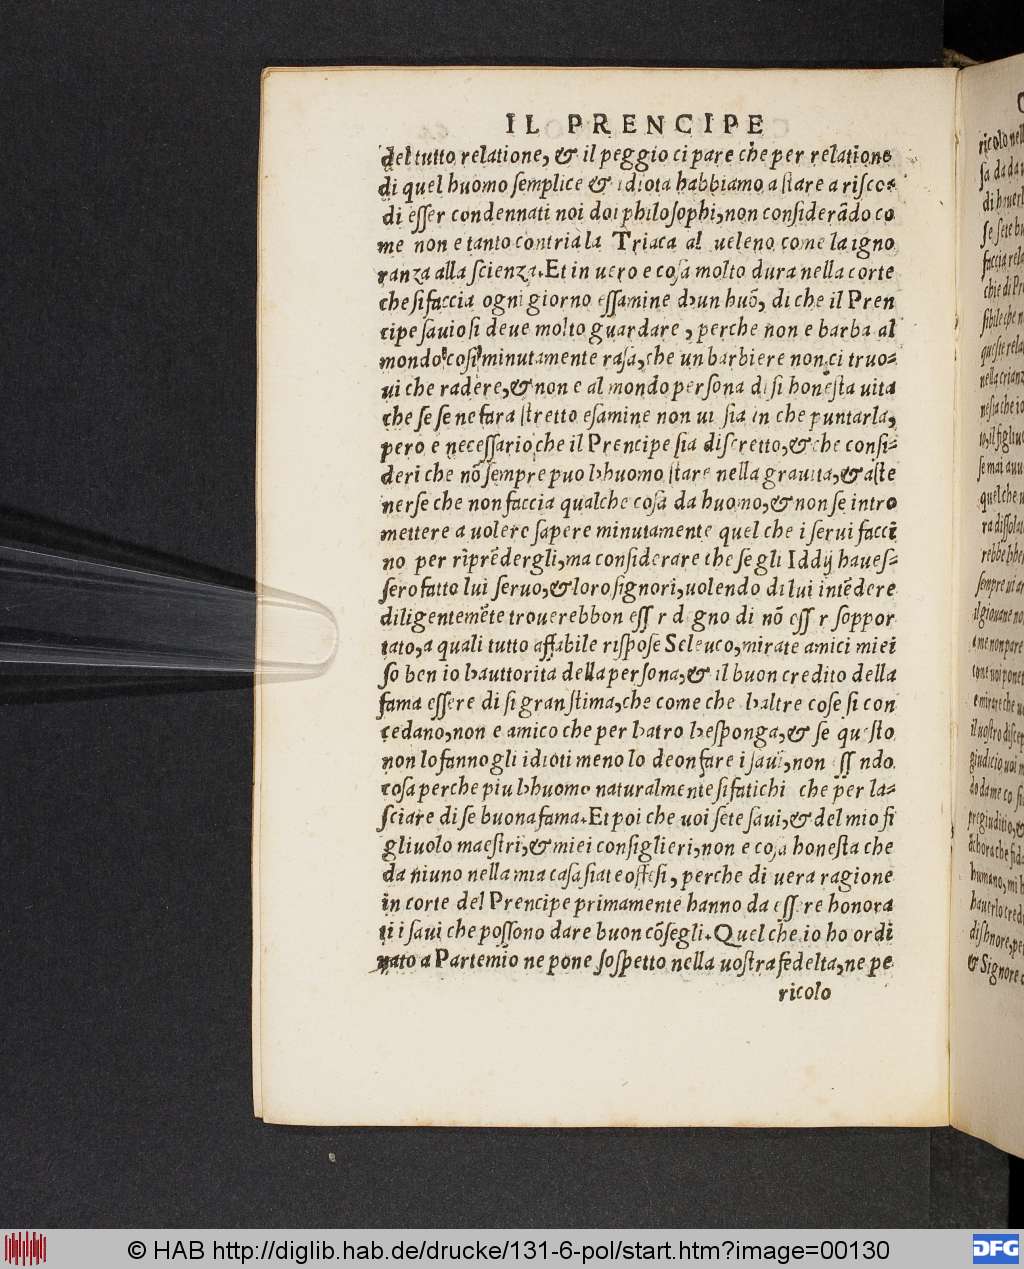 IL PRENCIPE
del tutto relatione, & il peggio ci pare che per relatione
di quel huomo semplice & idiota habbiamo a stare a risco
di esser condennati noi doi philosophi, non considerādo co
me non e tanto contria la Triaca al ueleno come la igno
ranza alla scienza. Et in uero e cosa molto dura nella corte
che si faccia ogni giorno essamine d'un huō, di che il Pren
cipe sauio si deue molto guardare, perche non e barba al
mondo cosi minutamente rasa, che un barbiere non ci truo-
ui che radere, & non e al mondo persona di si honesta uita
che se se ne fara stretto esamine non ui sia in che puntarla,
pero e necessario che il Prencipe sia discretto, & che consi-
deri che nō sempre puo l'huomo stare nella grauita, & aste
nerse che non faccia qualche cosa da huomo, & non se intro
mettere a uolere sapere minutamente quel che i serui facci
no per riprēdergli, ma considerare che se gli Iddij haues-
sero fatto lui seruo, & loro signori, uolendo di lui intēdere
diligentemēte trouerebbon ess r d gno di nō ess r soppor
tato, a quali tutto affabile rispose Seleuco, mirate amici miei
so ben io l'auttorita della persona, & il buon credito della
fama essere di si gran stima, che come che l'altre cose si con
cedano, non e amico che per l'atro l'esponga, & se questo
non lo fanno gli idioti meno lo deon fare i saui, non ss ndo
cosa perche piu l'huomo naturalmente si fatichi che per la-
sciare di se buona fama. Et poi che uoi sete saui, & del mio fi
gliuolo maestri, & miei consiglieri, non e cosa honesta che
da niuno nella mia casa siate offesi, perche di uera ragione
in corte del Prencipe primamente hanno da essere honora
ti i saui che possono dare buon cōsegli. Quel che io ho ordi
nato a Partemio ne pone sospetto nella uostra fedelta, ne pe
ricolo
© HAB http://diglib.hab.de/drucke/131-6-pol/start.htm?image=00130
DFG